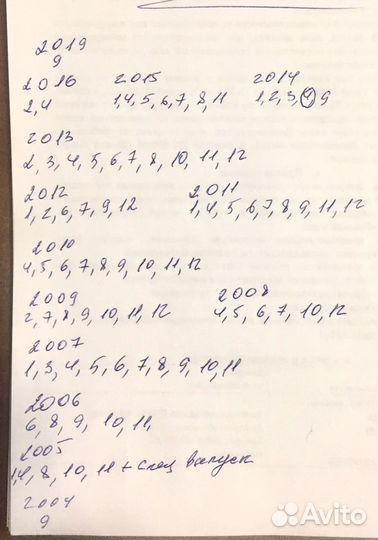 2019
9
2016 2015 2014
2,4 1,4,5,6,7,8,11 1,2,3,4,9
2013
2,3,4,5,6,7,8,10,11,12
2012 2011
1,2,6,7,9,12 1,4,5,6,7,8,9,11,12
2010
4,5,6,7,8,9,10,11,12
2009 2008
2,7,8,9,10,11,12 4,5,6,7,10,12
2007
1,3,4,5,6,7,8,9,10,11
2006
6,8,9, 10,11,
2005
1,4,8,10,11 + спец выпуск
2004
9
Avito